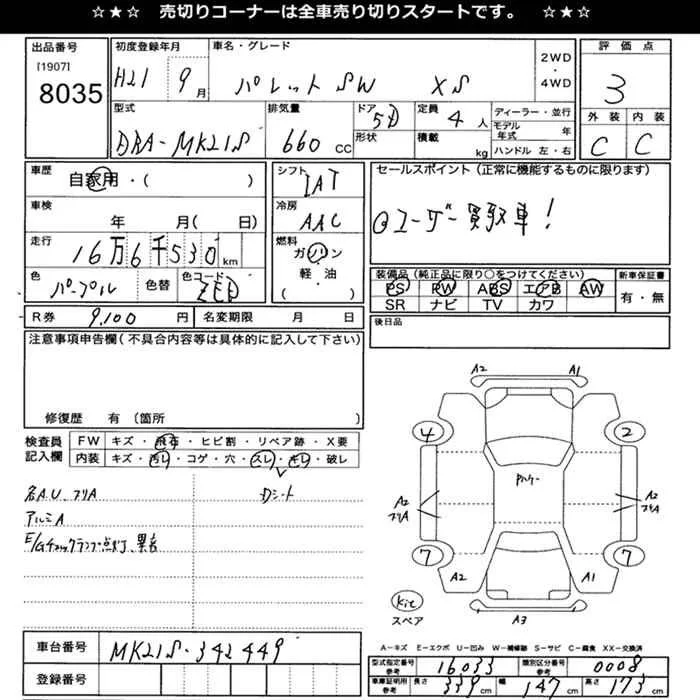 ☆★☆ 売切りコーナーは全車売り切りスタートです。 ☆★☆
出品番号
[1907]
8035
初度登録年月
H21 9月
車名・グレード
パレットSW XS
2WD
・
4WD
評価点
3
型式
DBA-MK21S
排気量
660 CC
ドア 5D
形状
定員 4人
積載 kg
ディーラー・並行
モデル年式 年
ハンドル 左・右
外装 内装
C C
車歴
自家用・( )
シフト
IAT
セールスポイント (正常に機能するものに限ります)
◎ユーザー買取車!
車検
年 月( 日)
冷房
AAC
走行
16万6千530km
燃料
ガソリン
・
軽・油
( )
色
パープル
色替
色コード
装備品(純正品に限り○をつけてください)
PS PW ABS エアB AW
SR ナビ TV カワ
新車保証書
有・無
R券 9,100円
名変期限 月 日
後日品
注意事項申告欄(不具合内容等は具体的に記入して下さい)
修復歴 有(箇所 )
検査員
記入欄
FW キズ・飛石・ヒビ割・リペア跡・X要
内装 キズ・汚レ・コゲ・穴・スレ・キレ・破レ
各A.U、フリA
Dシート
アルミA
E/Gチェックランプ点灯、異音
A2 A1
4 2
Pルケー
A2
フリA
A2
フリA
7 7
A2 A1
Kit
スペア
A3
A-キズ E-エクボ U-凹み W-補修跡 S-サビ C-腐食 XX-交換済
車台番号
MK21S-342449
登録番号
型式指定番号
参考
16033
類別区分番号
参考
0008
車庫証明用
参考
長さ 339cm
幅 147cm
高さ 173cm